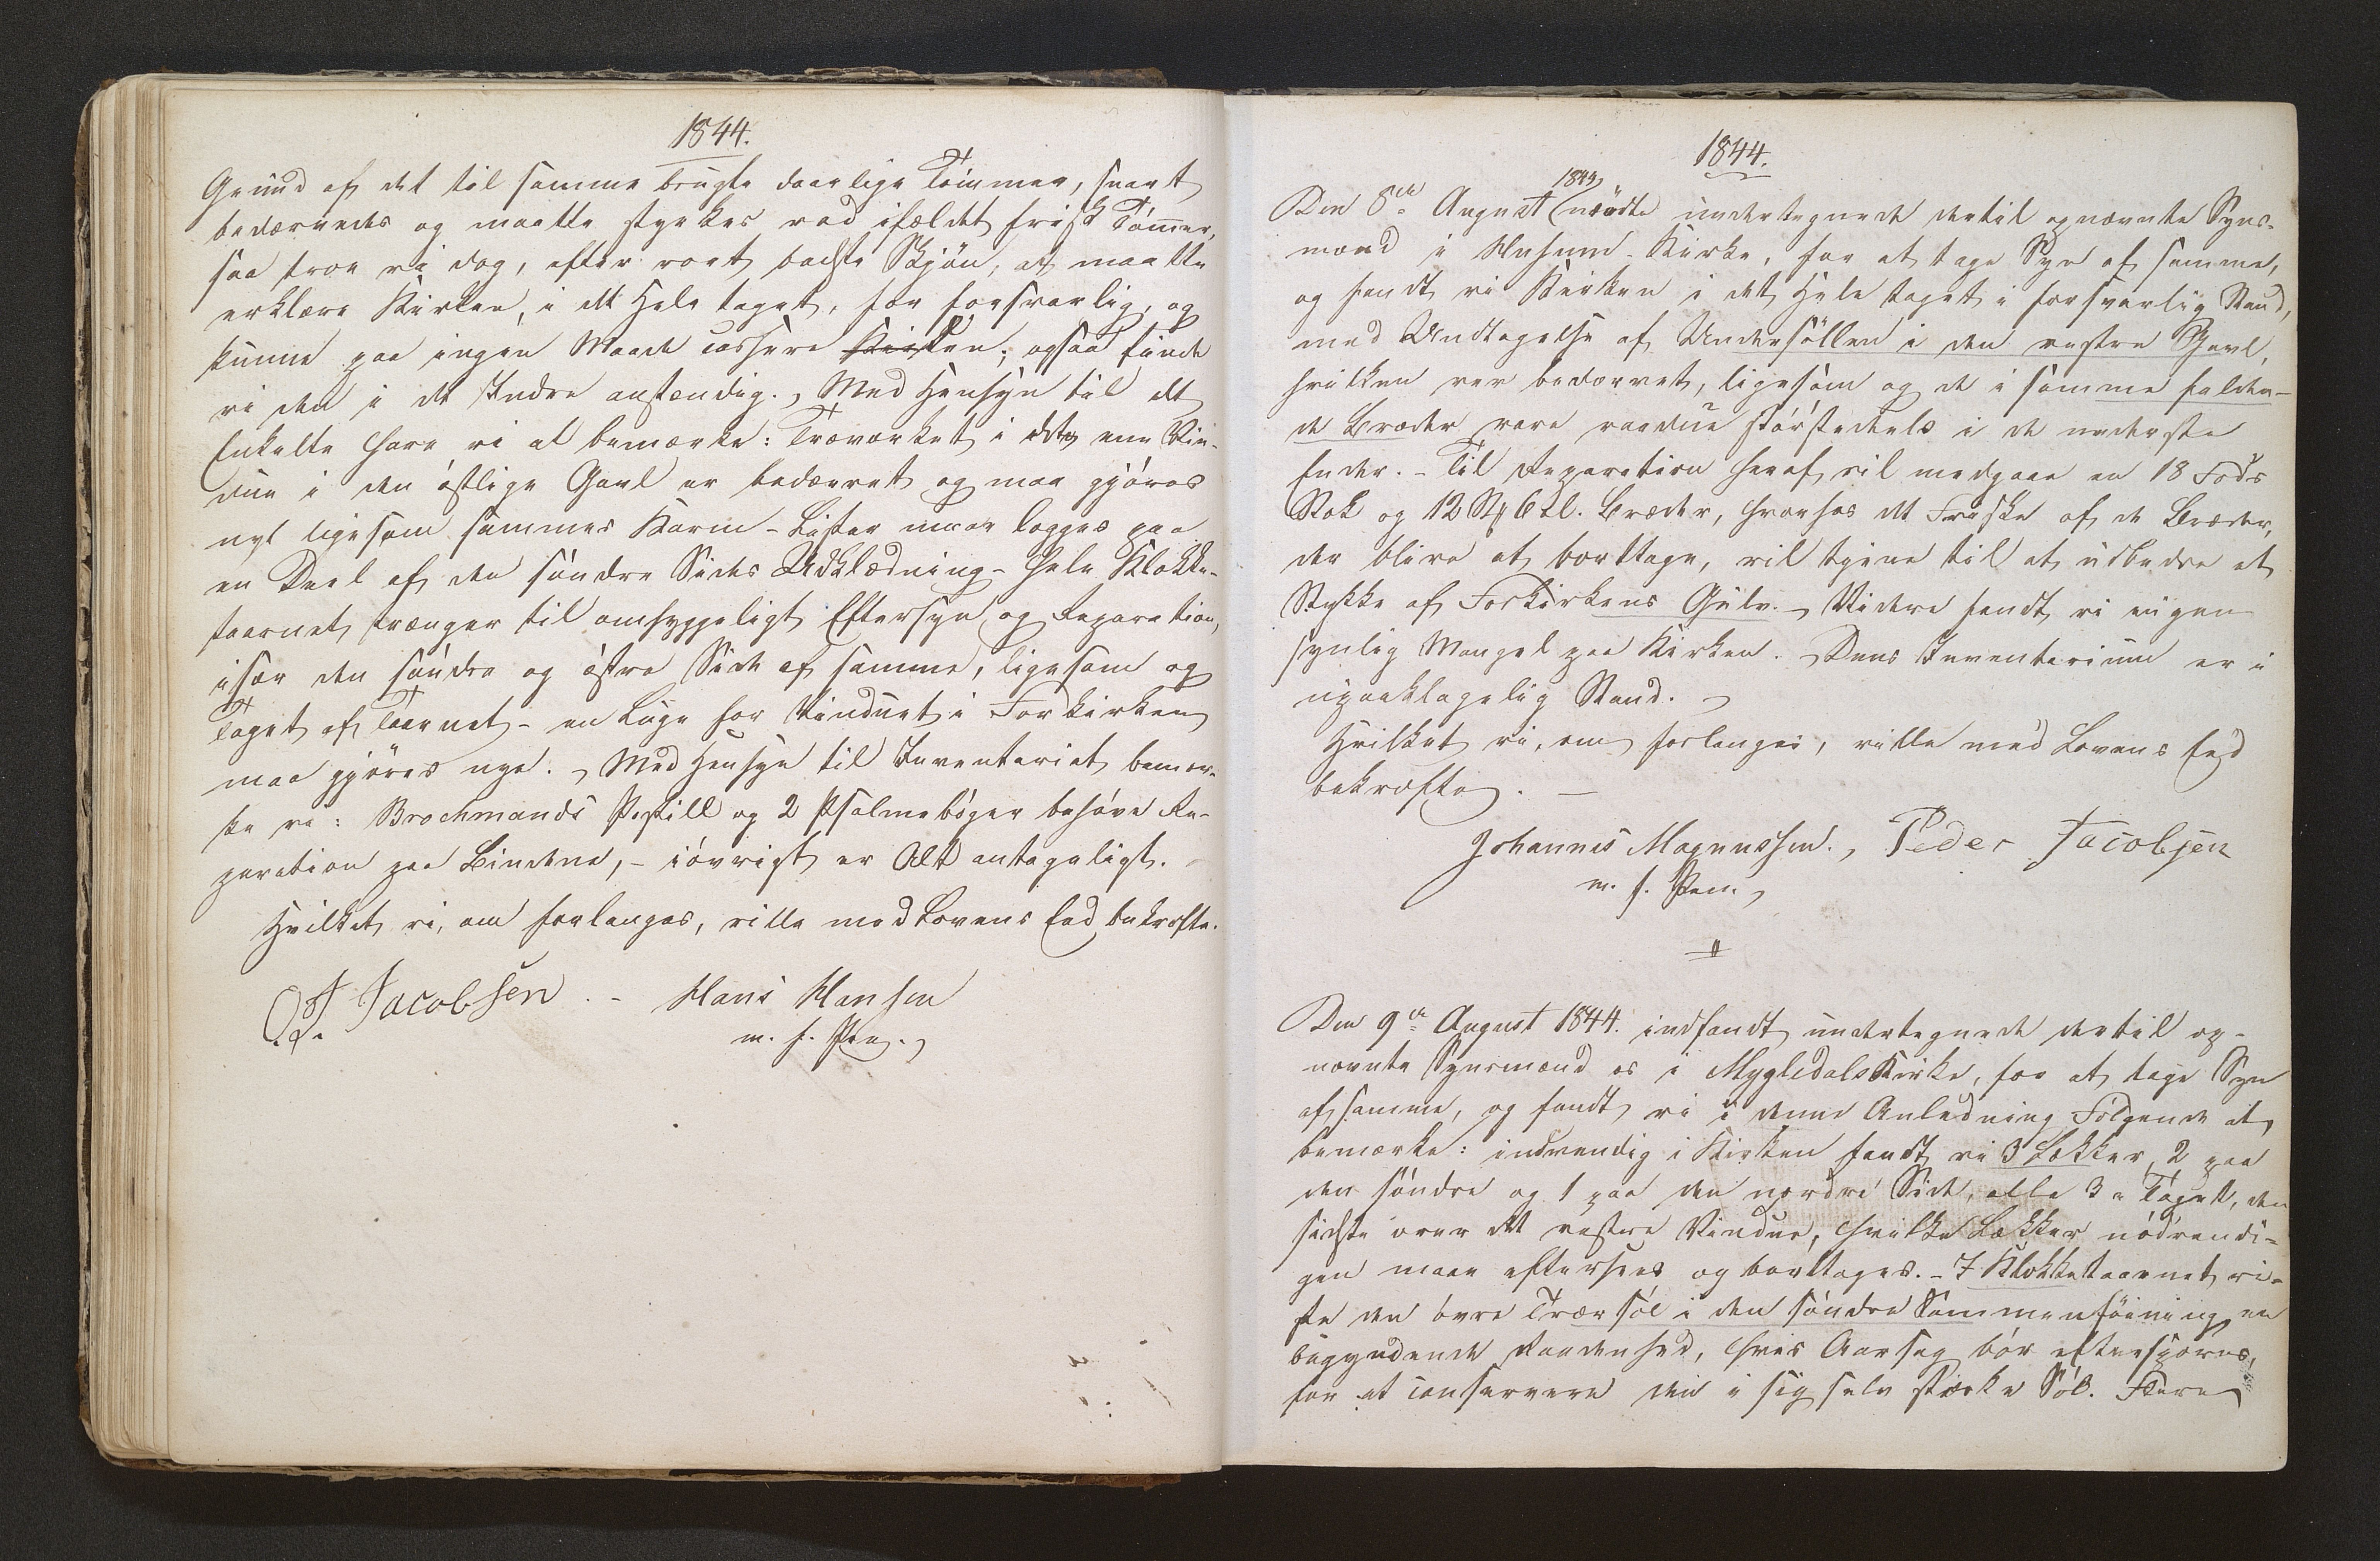 1844.
Grund af det til samme brugte daarlige Tömmer, snart
bedærvedes og maatte styrkes ved ifældet frisk Tömmer,
saa troe vi dog, efter vort bedste Skjön, at maatte
erklære Kirken, i det Hele taget, for forsvarlig, og
kunne paa ingen Maade cassere Kirken; ogsaa funde
vi den i det Indre anstændig. Med Hensyn til det
Enkelte have vi at bemærke: Træværket i det ene Vin-
due i den östlige Gavl er bedærvet og maa gjöres
nyt ligesom sammes Karm - Lister maae lægges paa
en Deel af den söndre Sides Udklædning - Hele Klokke-
taarnet trænger til omhyggeligt Eftersyn og Reparation,
især den söndre og östre Side af samme, ligesom og
Taget af Taarnet - en Luge for Vinduet i Forkirken
maa gjöres nye. Med Hensyn til Inventariet bemær-
ke vi: Brochmands Postill og 2 Psalmeböger behöve Re-
paration paa Bindene, - iövrigt er Alt antageligt.
Hvilket vi, om forlanges, ville med Lovens Eed bekræfte.
J. Jacobsen. - Hans Hansen
m. f. Pen.
1844.
1844
Den 8de August mödte undertegnede dertil opnævnte Syns-
mænd i Husum-Kirke, for at tage Syn af samme,
og fandt vi Kirken i det Hele taget i forsvarlig Stand,
med Undtagelse af Undersöllen i den vestre Gavl,
hvilken var bedærvet, ligesom og de i samme falden-
de Bræder vare raadne störstedeels i de nederste
Ender. - Til Reparation heraf vil medgaae en 18 Fods
Stok og 12 St 6 Al. Bræder, hvorhos det Friske af de Bræder,
der blive at borttage, vil tjene til at udbedre et
Stykke af Forkirkens Gulv. - Videre fandt vi ingen
synlig Mangel paa Kirken. Dens Inventarium er i
upaaklagelig Stand.
Hvilket vi, om forlanges, ville med Lovens Eed
bekræfte. -
Johannes Magnussen., Peder Jacobsen
m. f. Pen.
Den 9de August 1844. indfandt undertegnede dertil op-
nævnte Synsmænd os i MygledalsKirke, for at tage Syn
af samme, og fandt vi i denne Anledning Fölgende at
bemærke: indvendig i Kirken fandt vi 3 Lækker, 2 paa
den söndre og 1 paa den nordre Side, alle 3 i Taget, den
sidste over det vestre Vindue, hvilke Lækker nödvendi-
gen maae eftersees og borttages. - I Klokketaarnet vi-
ste den övre Tværsöl i den söndre Sammenföining en
begyndende Raadenhed, hvis Aarsag bör efterspores,
for at conservere den i sig selv stærke Söl. Flere